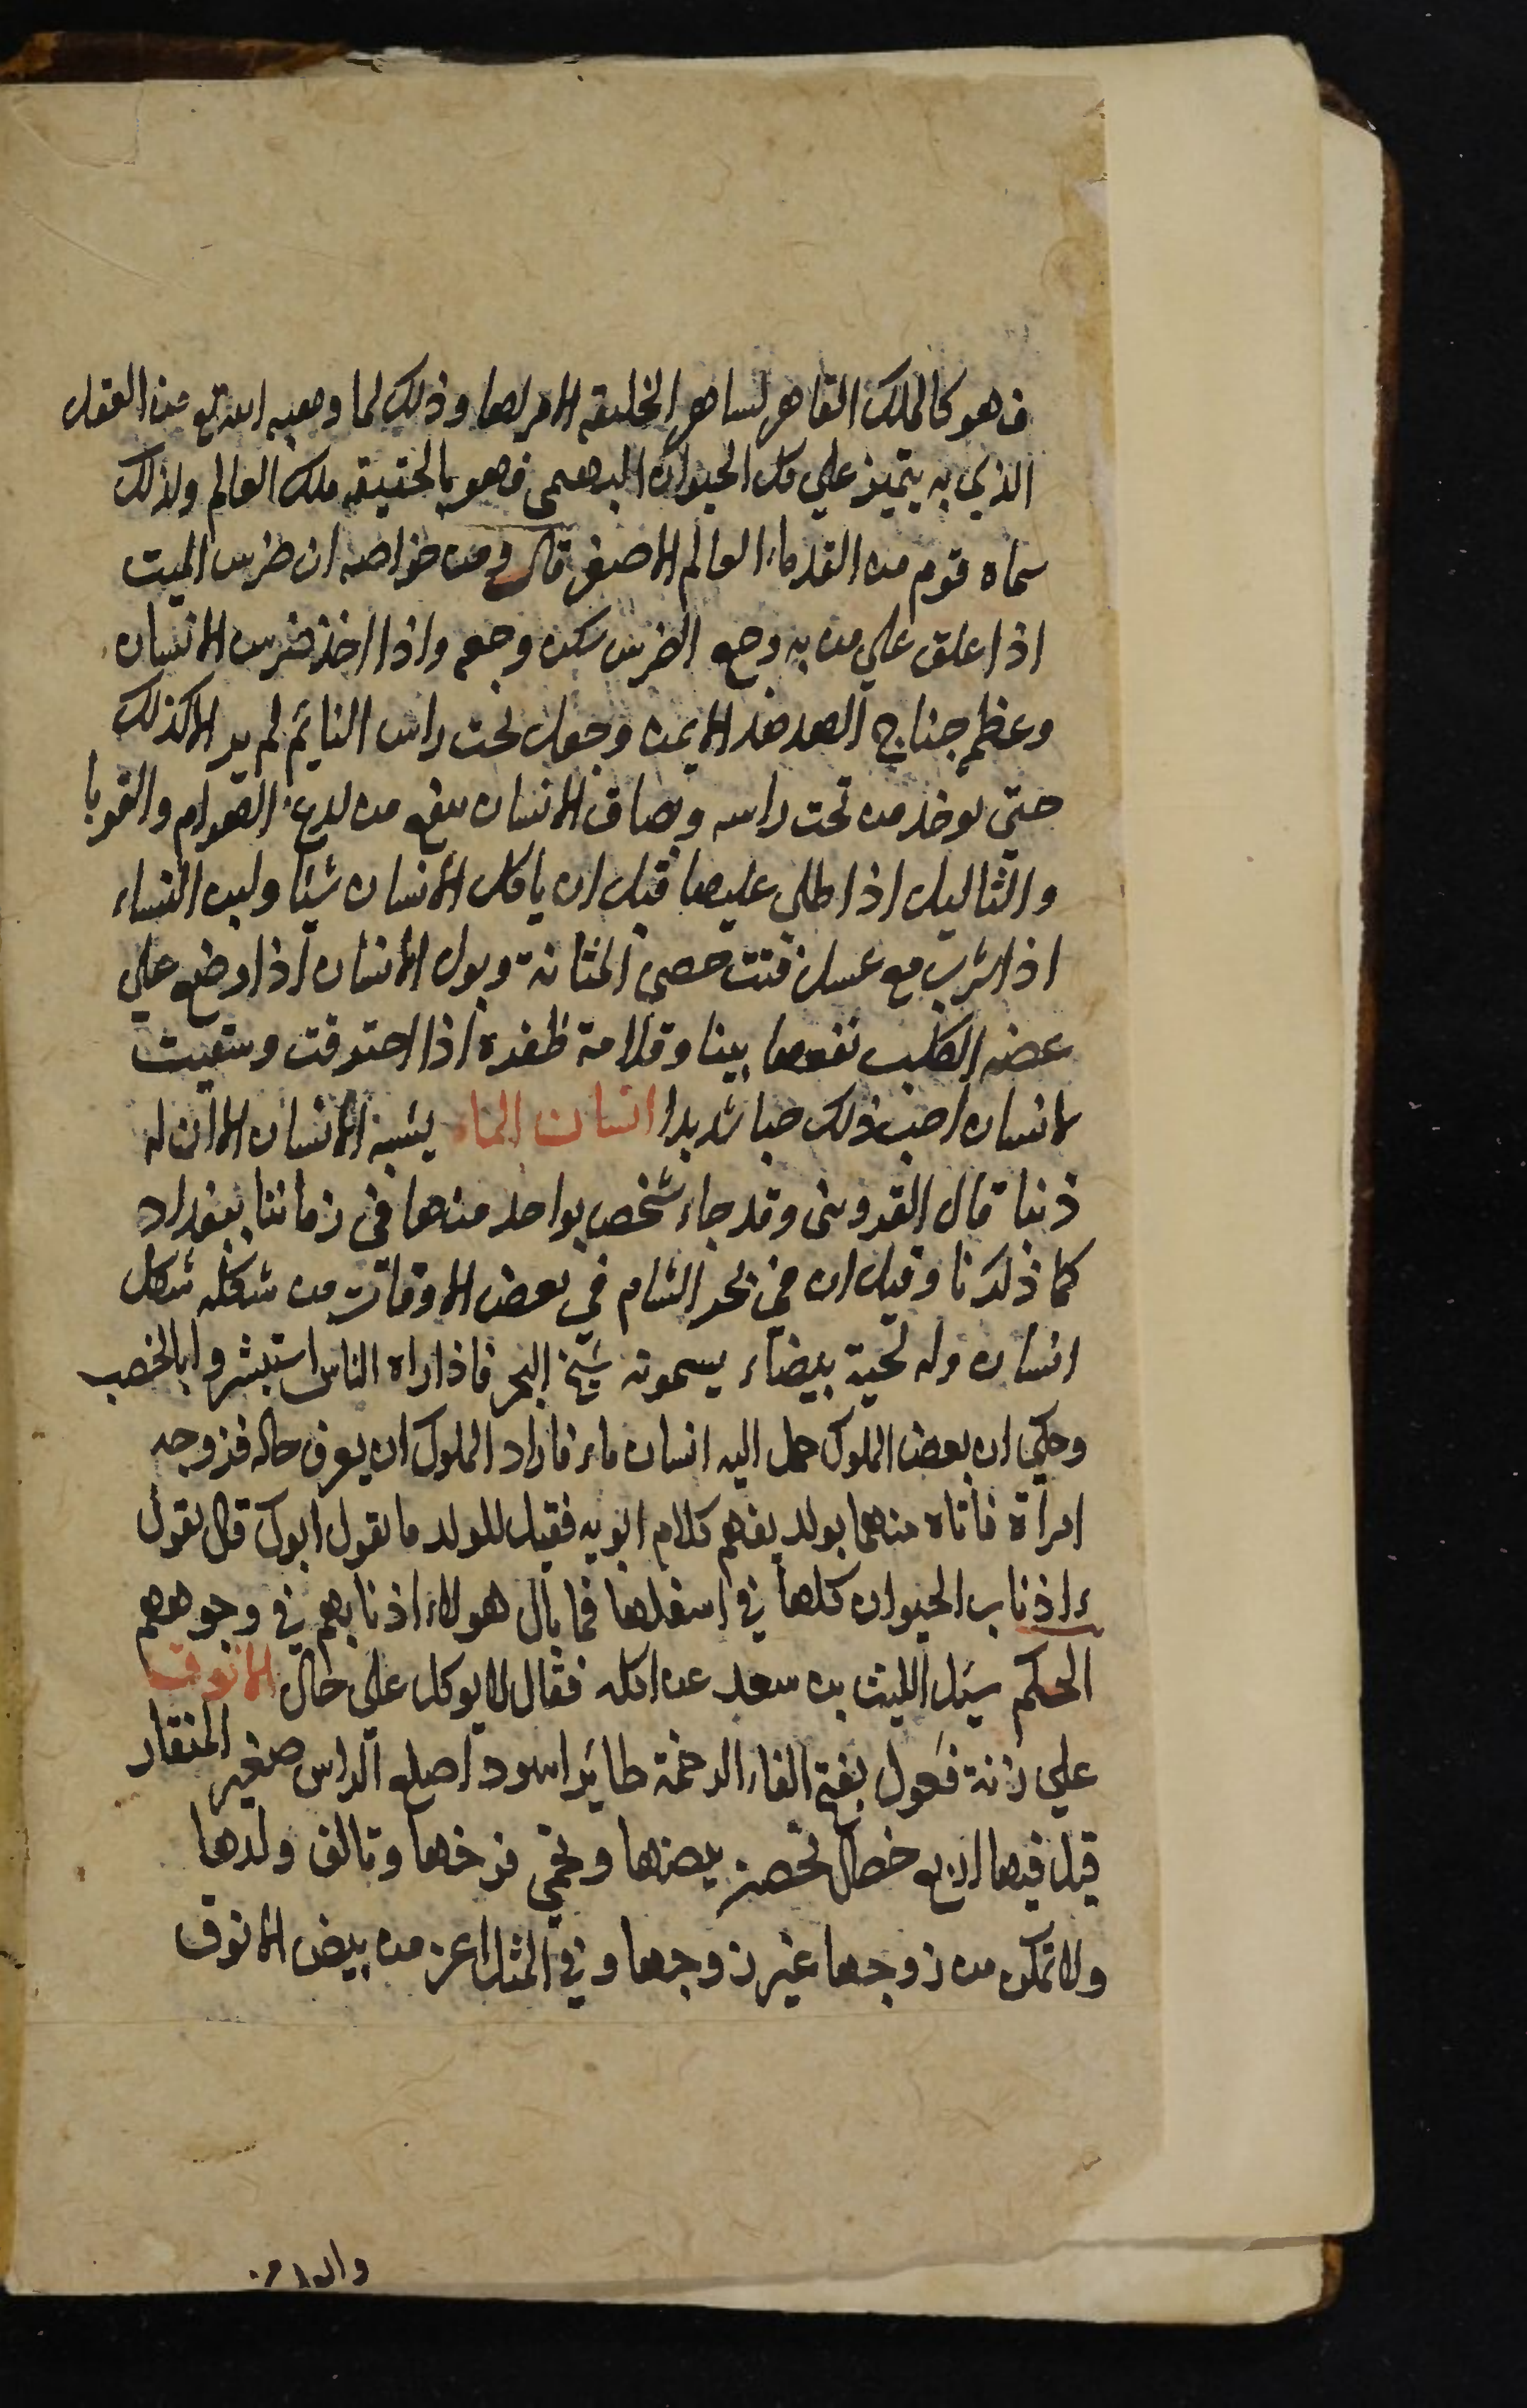 فهو كالملك القاهر لساهر الخليقه الامر لها وذلك لما وهبه الله تع من العقل
الذي به يتميز علي كل الحيوان البهيمى فهو بالحقيقه ملك العالم ولذلك
سماه قوم من القدماء العالم الاصغر قال ومن خواصه ان ضرس الميت
اذا علق علي من به وجع الضرس سكن وجعه واذا اخذ ضرس الانسان
وعظم جناح الهدهد الايمن وجعل تحت راس النايم لم يزل كذلك
حتي يوخذ من تحت راسه وبصاق الانسان ينفع من لدغ الهوام والقوبا
والثاليل اذا طلى عليها قبل ان ياكل الانسان شيئا ولبن النساء
اذا شرب مع عسل فتت حصى المثانة وبول الانسان اذا وضع علي
عضه الكلب نفعها بينا وقلامة ظفره اذا احترقت وسقيت
لانسان احب ذلك حبا شديدا انسان الماء يشبه الانسان الا ان له
ذنبا قال القزوينى وقد جاء شخص بواحد منها في زماننا ببغداد
كما ذكرنا وقيل ان في بحر الشام في بعض الاوقات من شكله شكل
انسان وله لحية بيضاء يسمونه شيخ البحر فاذا راه الناس استبشروا بالخصب
وحكي ان بعض الملوك حمل اليه انسان ماء فاراد الملوك ان يعرف حاله فزوجه
امرأة فأتاه منها بولد يفهم كلام ابويه فقيل للولد ما يقول ابوك قال يقول
اذناب الحيوان كلها في اسفلها فما بال هولاء اذنابهم في وجوههم
الحكم سئل الليث بن سعد عن اكله فقال لا يوكل على حال الانوق
علي زنة فعول بفتح الفاء الرخمة طاير اسود اصلع الراس صغير المنقار
قيل فيها اربع خصال تحصن بيضها وتحمي فرخها وتالف ولدها
ولا تمكن من زوجها غير زوجها وفي المثل اعز من بيض الانوق